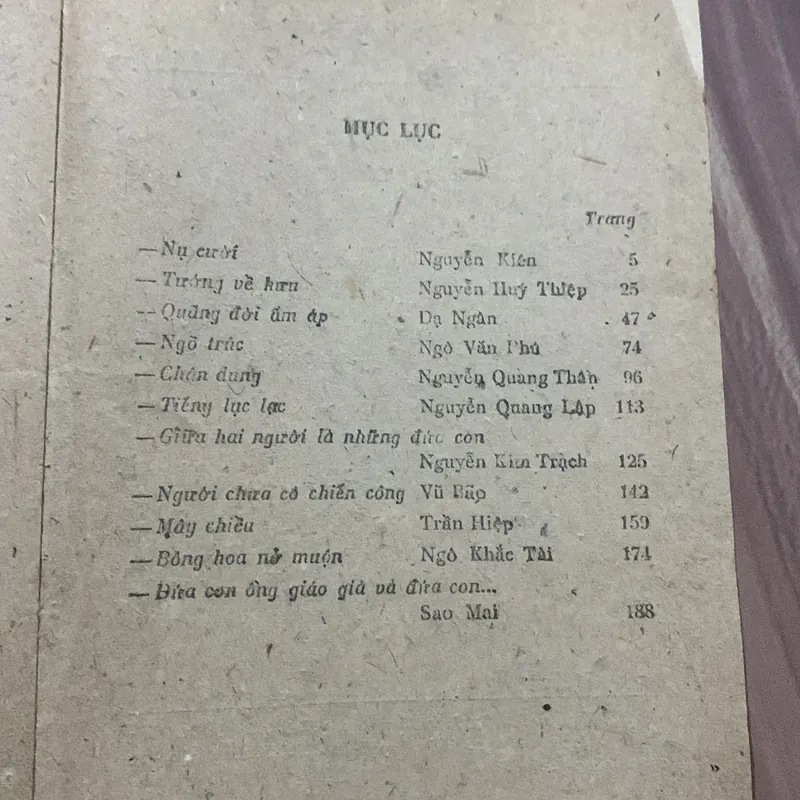 MỤC LỤC
Trang
—Nụ cười Nguyễn Kiên 5
—Tướng về hưu Nguyễn Huy Thiệp 25
—Quãng đời ấm áp Dạ Ngân 47
—Ngõ trúc Ngô Văn Phú 74
—Chân dung Nguyễn Quang Thân 96
—Tiếng lục lạc Nguyễn Quang Lập 113
—Giữa hai người là những đứa con
Nguyễn Kim Trạch 125
—Người chưa có chiến công Vũ Bão 142
—Mây chiều Trần Hiệp 159
—Bông hoa nở muộn Ngô Khắc Tài 174
—Đứa con ông giáo già và đứa con...
Sao Mai 188